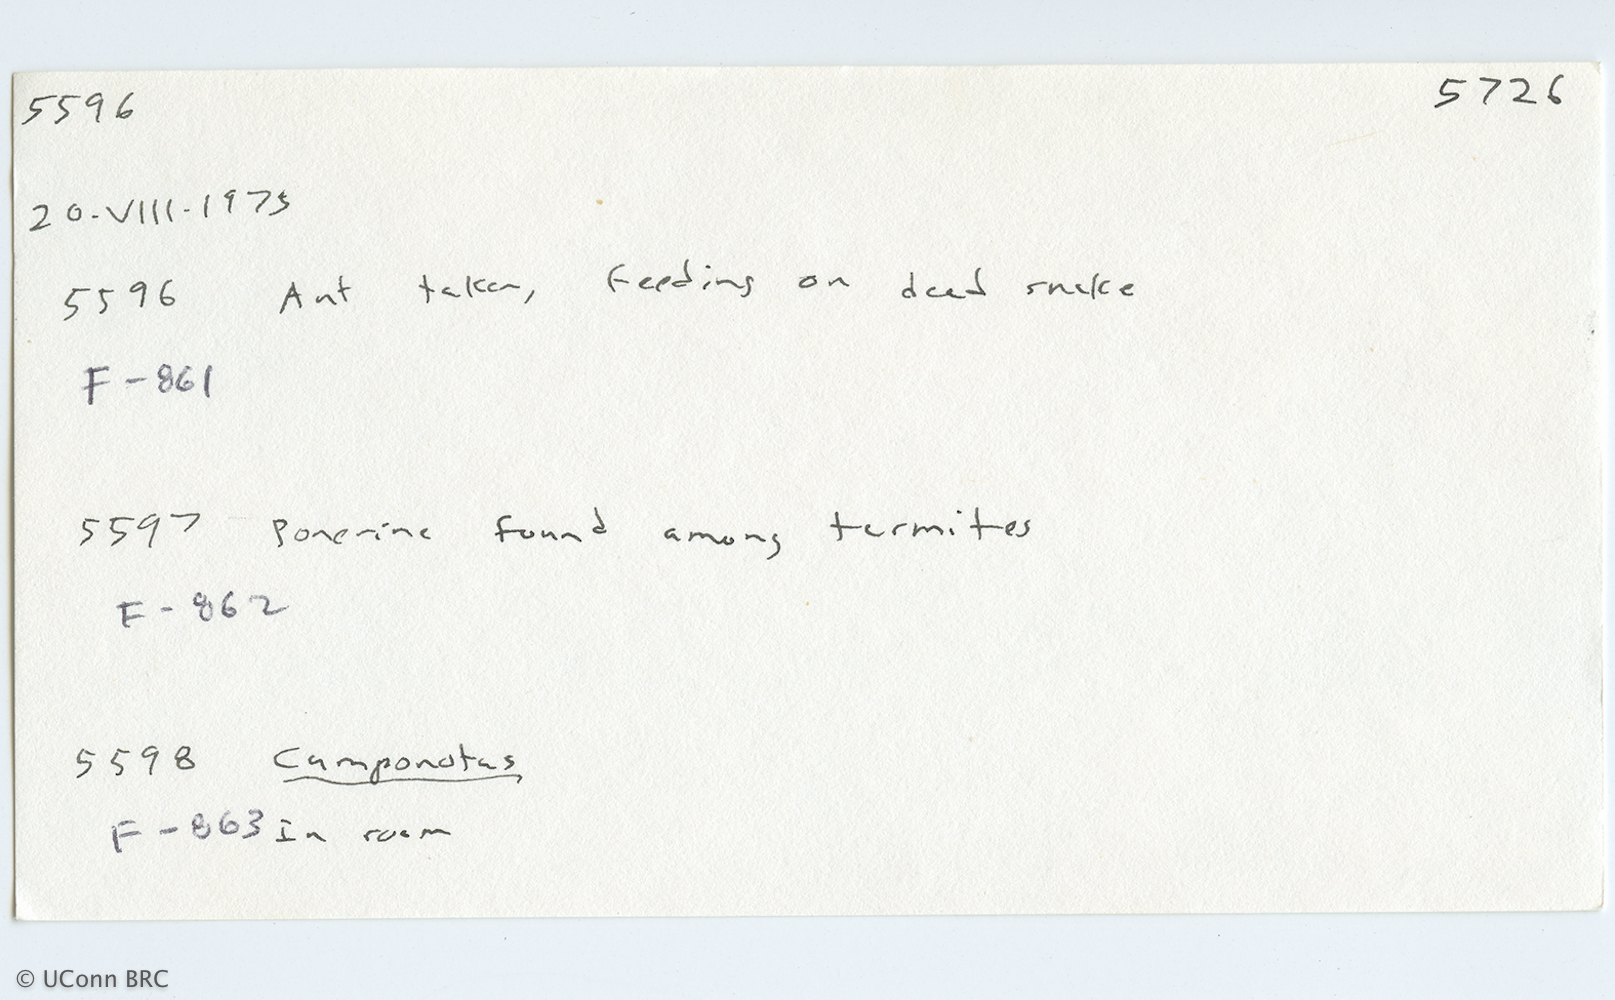 5596 5726
20-VIII-1975
5596 Ant taken, feeding on dead snake
F-861
5597 Ponerine found among termites
F-862
5598 Camponotus
F-863 In room
© UConn BRC